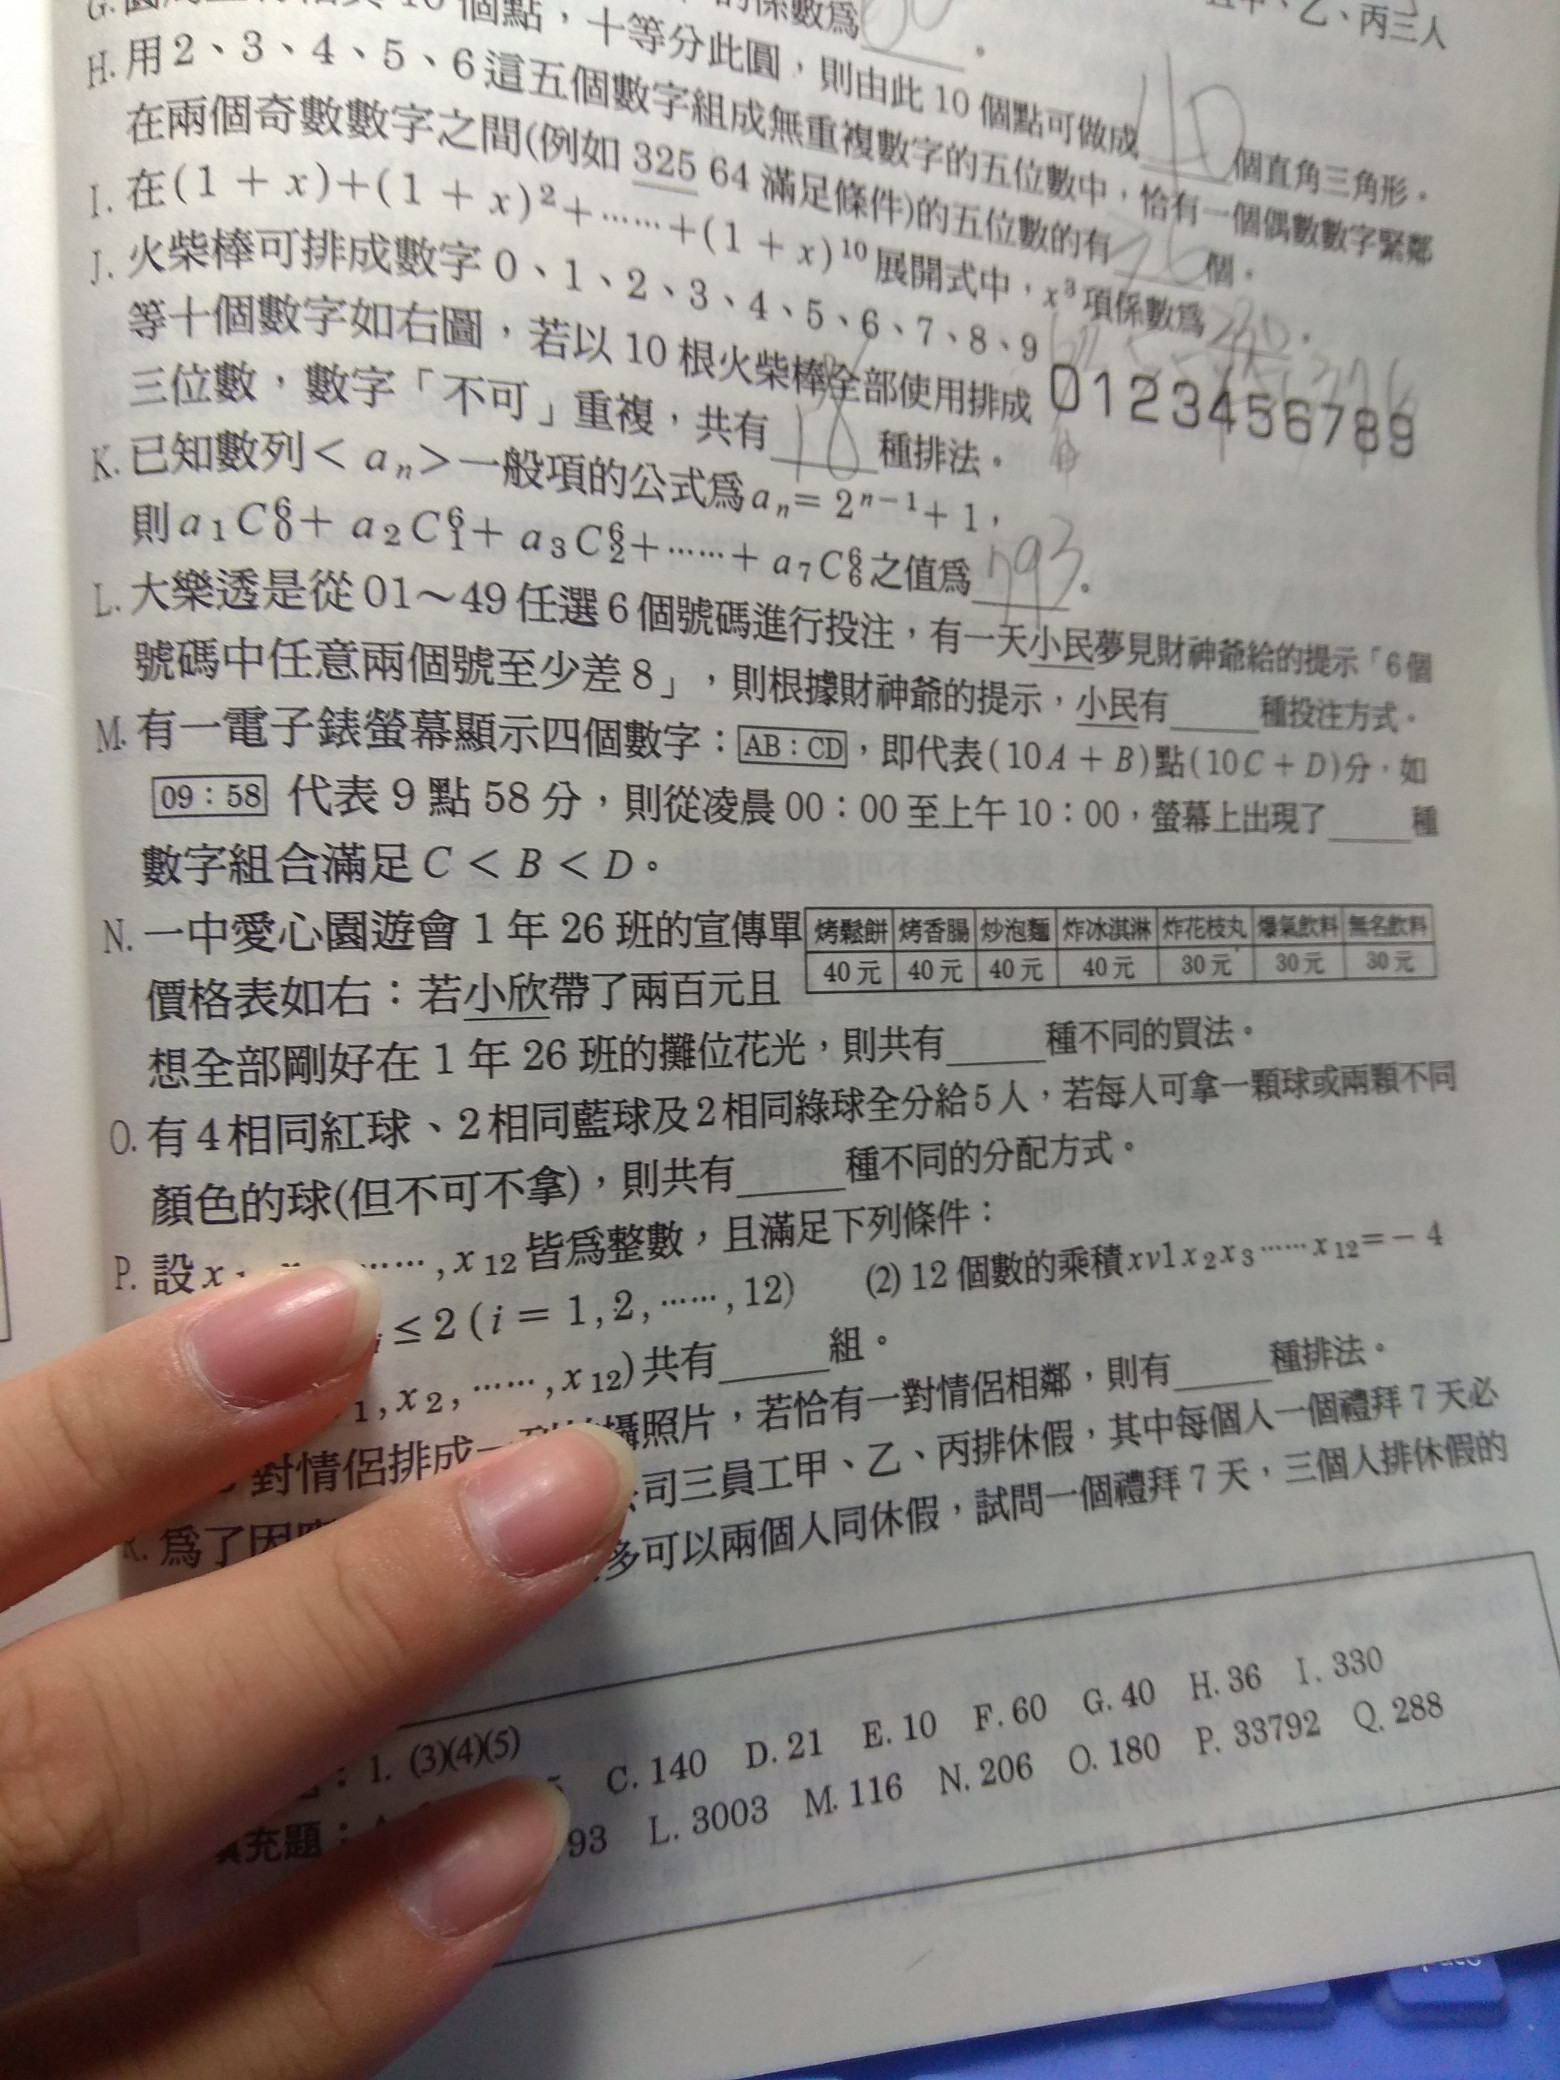 個點，十等分此圓，則由此 10 個點可做成40個直角三角形。
的係數為60。
乙、丙三人
H. 用 2、3、4、5、6 這五個數字組成無重複數字的五位數中，恰有一個偶數數字緊鄰
在兩個奇數數字之間(例如 325 64 滿足條件)的五位數的有36個。
I. 在(1 + x)+(1 + x)²+……+(1 + x)¹⁰展開式中，x³項係數為330。
J. 火柴棒可排成數字 0、1、2、3、4、5、6、7、8、9
等十個數字如右圖，若以 10 根火柴棒全部使用排成
0123456789
三位數，數字「不可」重複，共有18種排法。
K. 已知數列< aₙ>一般項的公式為aₙ= 2ⁿ⁻¹+ 1，
則a₁C⁶₀+ a₂C⁶₁+ a₃C⁶₂+……+ a₇C⁶₆之值為793。
L. 大樂透是從 01～49 任選 6 個號碼進行投注，有一天小民夢見財神爺給的提示「6 個
號碼中任意兩個號至少差 8」，則根據財神爺的提示，小民有____種投注方式。
M. 有一電子錶螢幕顯示四個數字：AB：CD，即代表(10A + B)點(10C + D)分，如
09：58 代表 9 點 58 分，則從凌晨 00：00 至上午 10：00，螢幕上出現了____種
數字組合滿足 C < B < D。
N. 一中愛心園遊會 1 年 26 班的宣傳單
烤鬆餅 烤香腸 炒泡麵 炸冰淇淋 炸花枝丸 爆氣飲料 無名飲料
40 元 40 元 40 元 40 元 30 元 30 元 30 元
價格表如右：若小欣帶了兩百元且
想全部剛好在 1 年 26 班的攤位花光，則共有____種不同的買法。
O. 有 4 相同紅球、2 相同藍球及 2 相同綠球全分給 5 人，若每人可拿一顆球或兩顆不同
顏色的球(但不可不拿)，則共有____種不同的分配方式。
P. 設 x ……,x₁₂皆為整數，且滿足下列條件：
ᵢ ≤ 2 ( i = 1, 2, ……, 12) (2) 12 個數的乘積xv1x₂x₃……x₁₂= − 4
₁, x₂, ……, x₁₂)共有____組。
對情侶排成一列拍攝照片，若恰有一對情侶相鄰，則有____種排法。
R. 為了因 公司三員工甲、乙、丙排休假，其中每個人一個禮拜 7 天必
多可以兩個人同休假，試問一個禮拜 7 天，三個人排休假的
：1. (3)(4)(5)
填充題： C. 140 D. 21 E. 10 F. 60 G. 40 H. 36 I. 330
93 L. 3003 M. 116 N. 206 O. 180 P. 33792 Q. 288